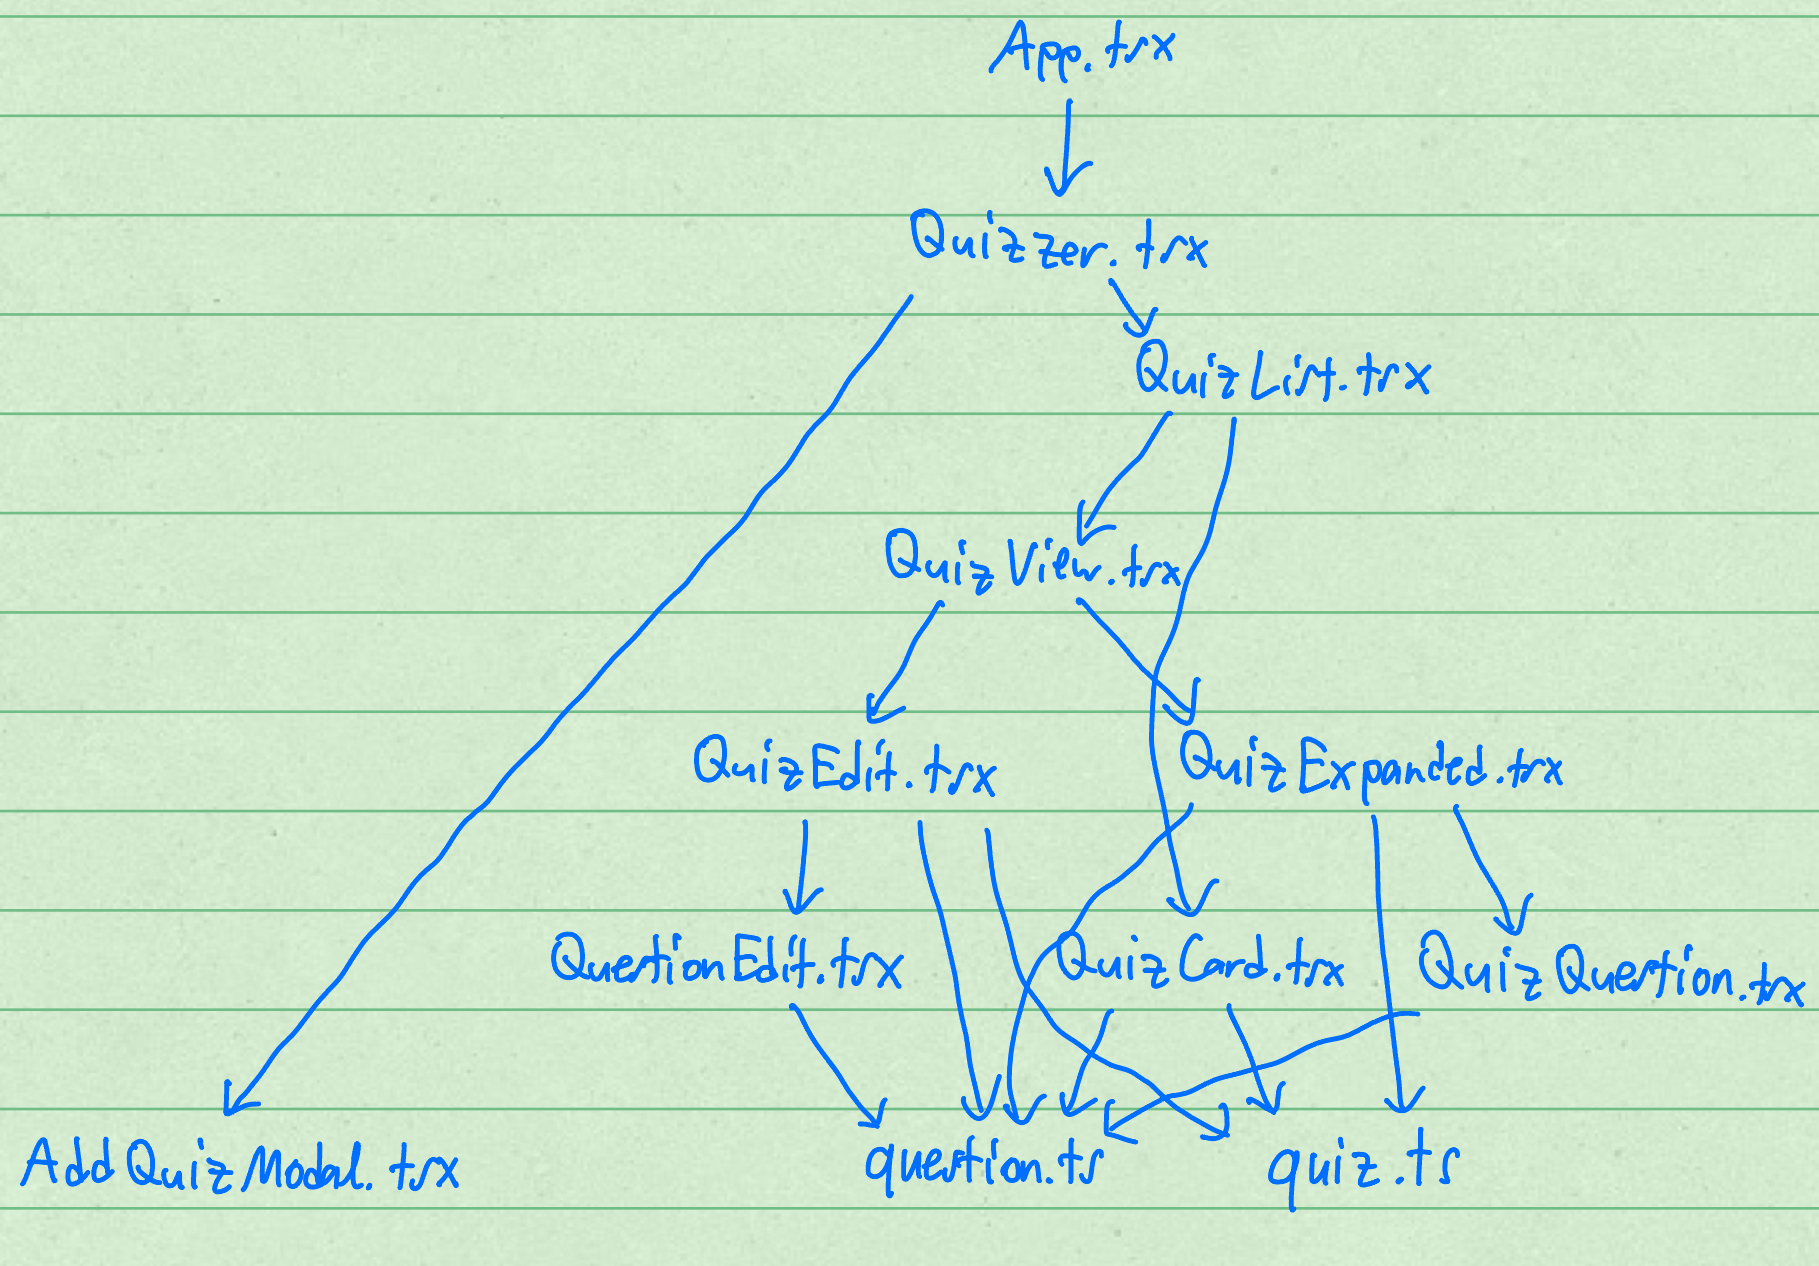 App.tsx
Quizzer.tsx
QuizList.tsx
QuizView.tsx
QuizEdit.tsx QuizExpanded.tsx
QuestionEdit.tsx QuizCard.tsx QuizQuestion.tsx
AddQuizModal.tsx question.ts quiz.ts